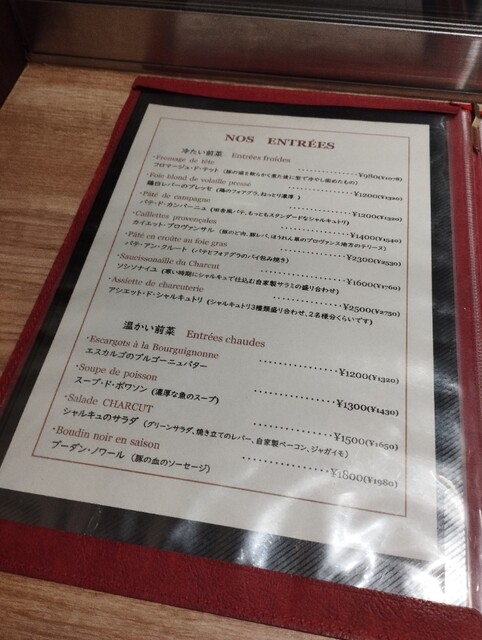 NOS ENTRÉES
冷たい前菜 Entrées froides
・Fromage de tête ¥980(¥1078)
フロマージュ・ド・テット (豚の頭を軟らかく煮た後に型で冷やし固めたもの)
・Foie blond de volaille pressé ¥1200(¥1320)
鶏白レバーのプレッセ (鶏のフォアグラ、ねっとり濃厚)
・Pâté de campagne ¥1200(¥1320)
パテ・ド・カンパーニュ (田舎風パテ、もっともスタンダードなシャルキュトリ)
・Caillettes provençales ¥1400(¥1540)
カイエット・プロヴァンサル (豚のど肉、豚レバ、ほうれん草のプロヴァンス地方のテリーヌ)
・Pâté en croûte au foie gras ¥2300(¥2530)
パテ・アン・クルート (パテとフォアグラのパイ包み焼き)
・Saucissonaille du Charcut ¥1600(¥1760)
ソシソナイユ (寒い時期にシャルキュで仕込む自家製サラミの盛り合わせ)
・Assiette de charcuterie ¥2500(¥2750)
アシエット・ド・シャルキュトリ (シャルキュトリ3種類盛り合わせ、2名様分くらいです)
温かい前菜 Entrées chaudes
・Escargots à la Bourguignonne ¥1200(¥1320)
エスカルゴのブルゴーニュバター
・Soupe de poisson ¥1300(¥1430)
スープ・ド・ポワソン (濃厚な魚のスープ)
・Salade CHARCUT ¥1500(¥1650)
シャルキュのサラダ (グリーンサラダ、焼き立てのレバー、自家製ベーコン、ジャガイモ)
・Boudin noir en saison ¥1800(¥1980)
ブーダン・ノワール (豚の血のソーセージ)